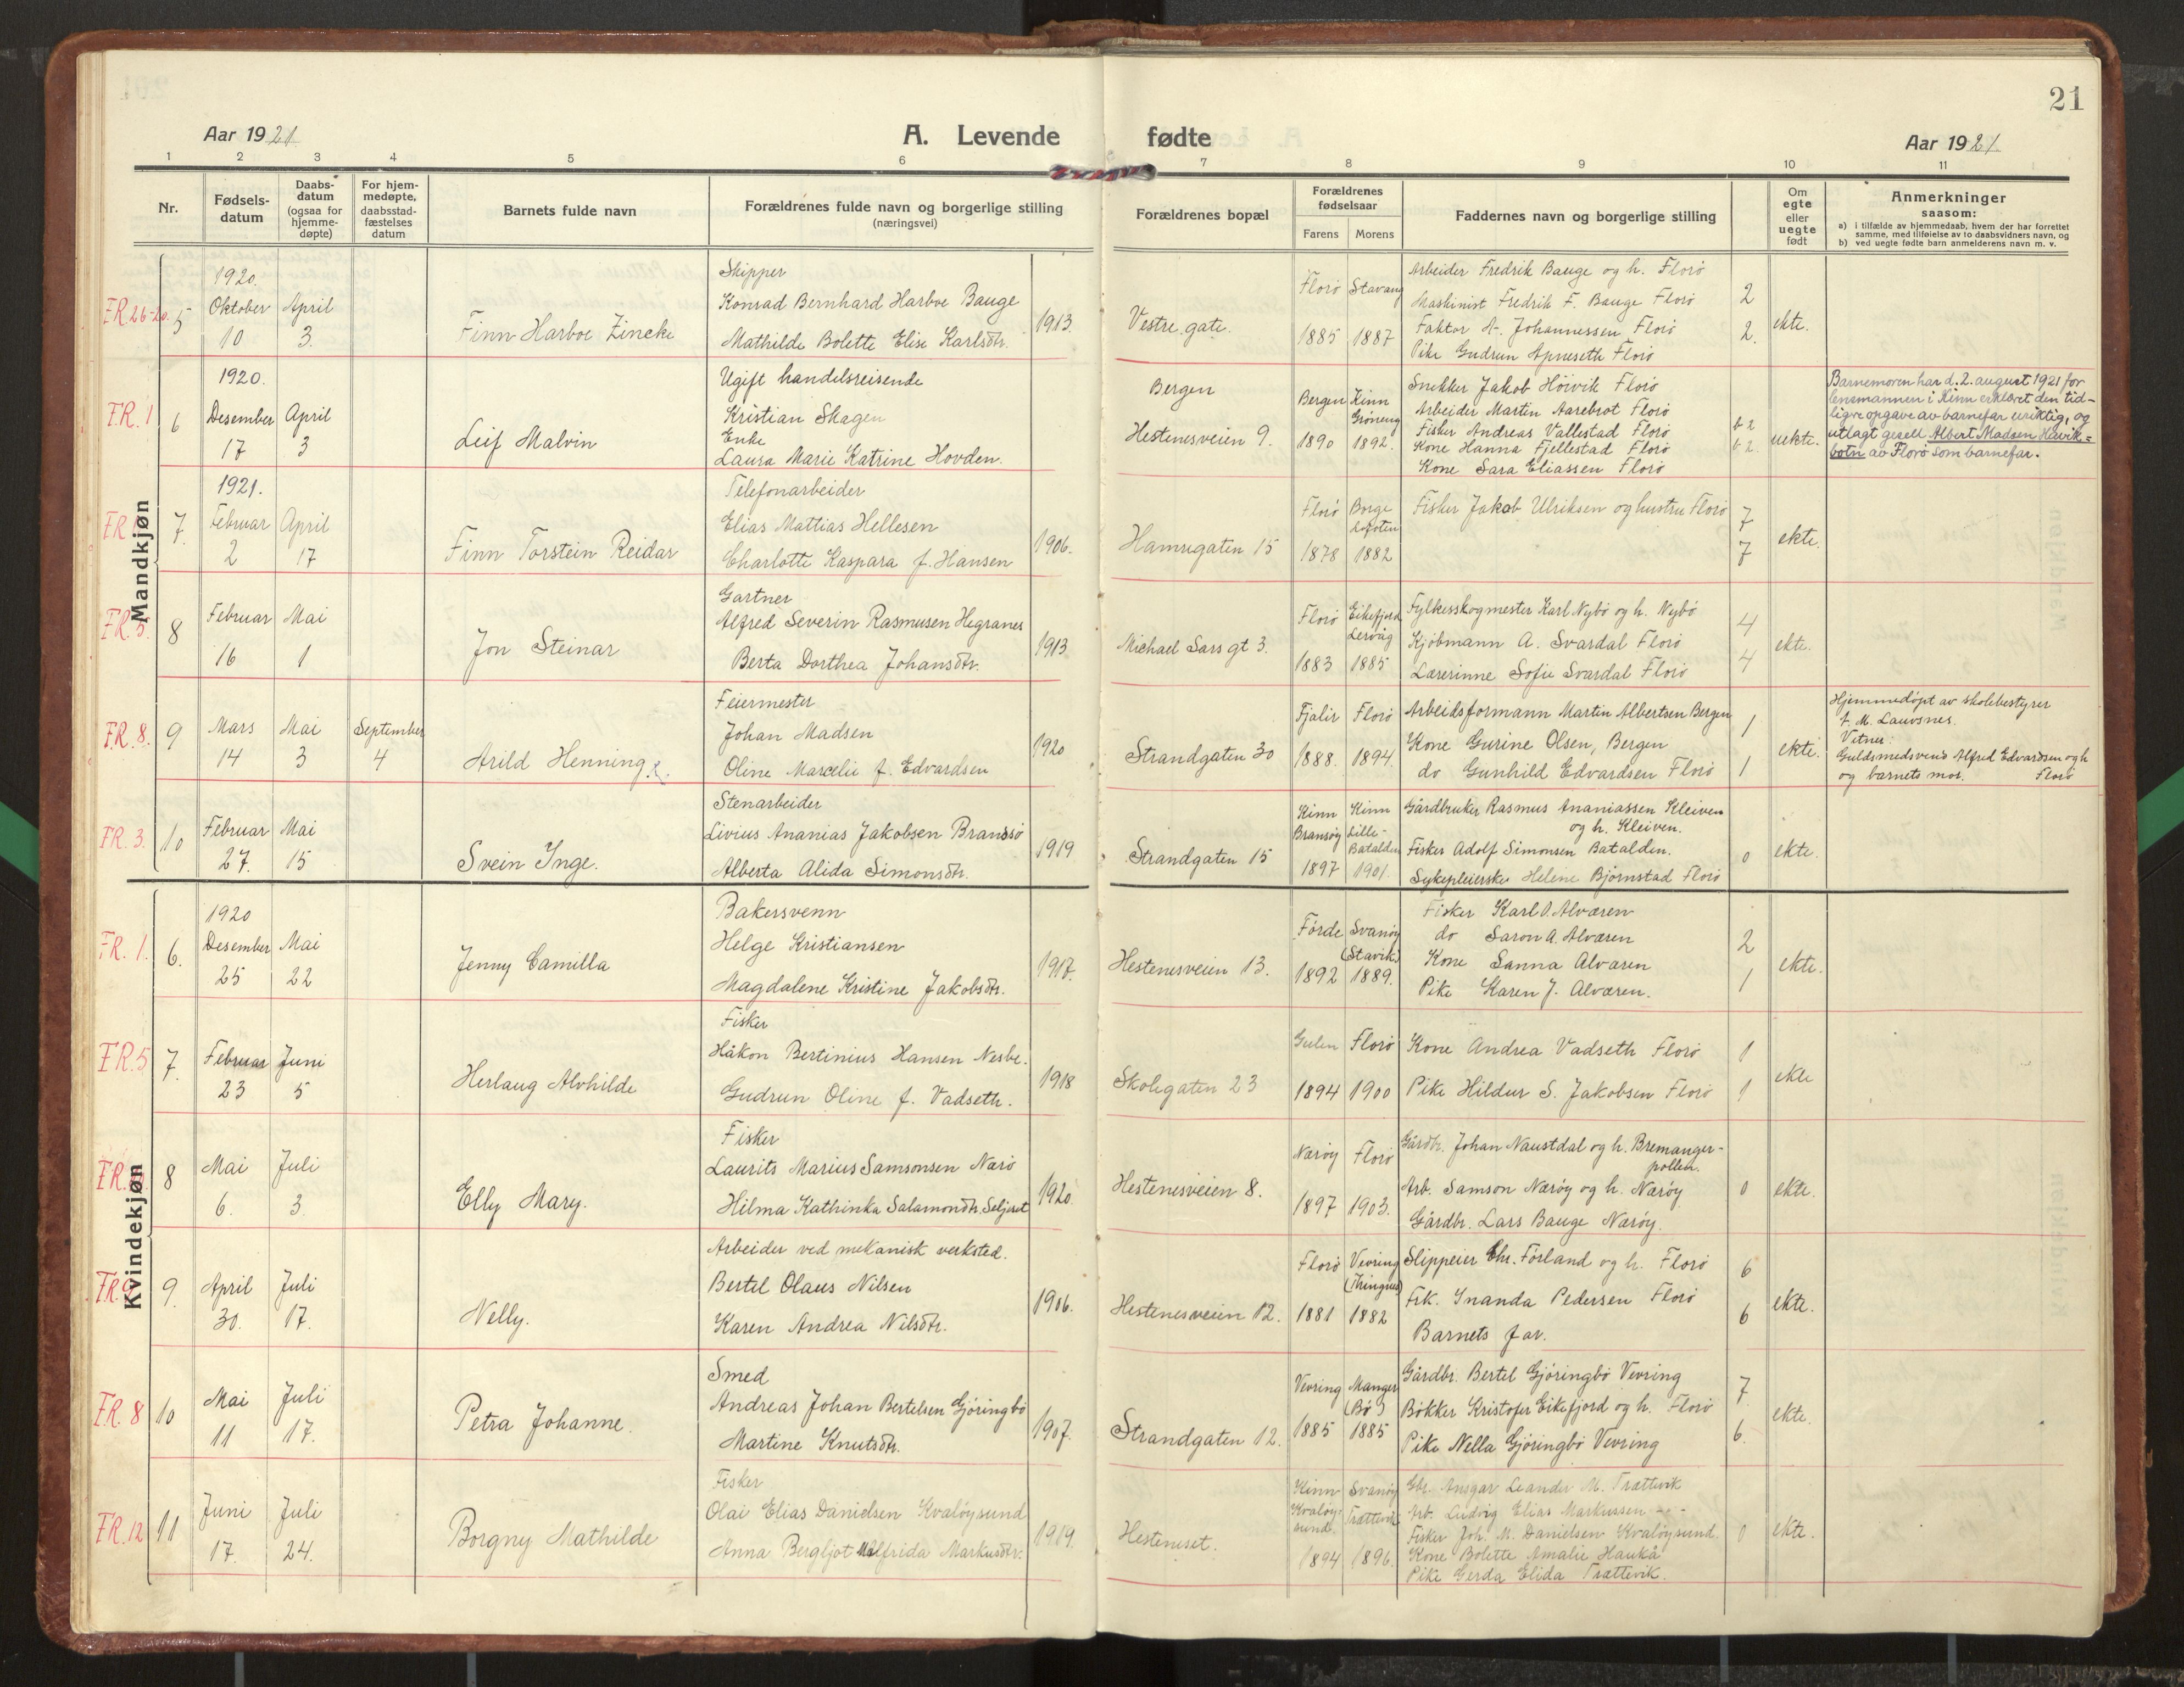 21
Aar 1921.
A. Levende fødte
Aar 1921.
1 2 3 4 5 6 7 8 9 10 11
Nr.
Fødsels-
datum
Daabs-
datum
(ogsaa for
hjemme-
døpte)
For hjem-
medøpte,
daabsstad-
fæstelses
datum
Barnets fulde navn
Forældrenes fulde navn og borgerlige stilling
(næringsvei)
Forældrenes bopæl
Forældrenes
fødselsaar
Farens Morens
Faddernes navn og borgerlige stilling
Om
egte
eller
uegte
født
Anmerkninger
saasom:
a) i tilfælde av hjemmedaab, hvem der har forrettet
samme, med tilføielse av to daabsvidners navn, og
b) ved uegte fødte barn anmelderens navn m. v.
Mandkjøn
FR. 26-20.
5
1920.
Oktober
10
April
3.
Finn Harboe Zincke
Skipper
Konrad Bernhard Harboe Bauge
Mathilde Bolette Elise Karlsdtr.
1913.
Vestre gate.
Florø
1885
Stavang
1887
Arbeider Fredrik Bauge og h. Florø
Maskinist Fredrik F. Bauge Florø
Faktor A. Johannessen Florø
Pike Gudrun Apneseth Florø
2
2.
ekte.
FR. 1
6
1920.
Desember
17
April
3
Leif Malvin
Ugift handelsreisende
Kristian Skagen
Enke
Laura Marie Katrine Hovden.
Bergen
Hestenesveien 9.
Bergen
1890
Kinn
Grøneng
1892.
Snekker Jakob Høivik Florø
Arbeider Martin Aarebrot Florø
Fisker Andreas Vallestad Florø
Kone Hanna Fjellestad Florø
Kone Sara Eliassen Florø
b 2
b 2.
uekte.
Barnemoren har d. 2. august 1921 for
lensmannen i Kinn erklæret den tid-
ligre opgave av barnefar uriktig, og
utlagt gesell Albert Madsen Høvik-
botn av Florø som barnefar.
FR.
7.
1921.
Februar
2
April
17
Finn Torstein Reidar
Telefonarbeider
Elias Mattias Hellesen
Charlotte Kaspara f. Hansen
1906.
Hamregaten 15
Florø
1878
Borge
Lofoten
1882
Fisker Jakob Ulriksen og hustru Florø
7
7
ekte.
FR. 5.
8
Februar
16
Mai
1
Jon Steinar
Gartner
Alfred Severin Rasmusen Hegranes
Berta Dorthea Johansdtr.
1913
Michael Sars gt 3.
Florø
1883
Eikefjord
Lervåg
1885
Fylkesskogmester Karl Nybø og h. Nybø
Kjøbmann A. Svardal Florø
Lærerinne Sofie Svardal Florø
4
4
ekte.
FR. 8.
9
Mars
14
Mai
3
September
4
Arild Henning
Feiermester
Johan Madsen
Oline Marcelie f. Edvardsen
1920
Strandgaten 30
Fjalir
1888.
Florø
1894.
Arbeidsformann Martin Albertsen Bergen
Kone Gurine Olsen, Bergen
do Gunhild Edvardsen Florø
1
1
ekte.
Hjemmedøpt av skolebestyrer
A. M. Lauvsnes.
Vitner:
Guldsmedsvend Alfred Edvardsen og h
og barnets mor. Florø
FR. 3.
10
Februar
27.
Mai
15
Svein Inge.
Stenarbeider
Livius Ananias Jakobsen Bransø
Alberta Alida Simonsdtr.
1919
Strandgaten 15
Kinn
Bransøy
1897
Kinn
Lille-
Batalden
1901.
Gårdbruker Rasmus Ananiassen Kleiven
og h. Kleiven.
Fisker Adolf Simonsen Batalden.
Sykepleierske Helene Bjørnstad Florø
0
ekte.
Kvindekjøn
FR. 1.
6.
1920
Desember
25
Mai
22
Jenny Camilla
Bakersvenn
Helge Kristiansen
Magdalene Kristine Jakobsdtr.
1917.
Hestenesveien 13.
Førde
1892
Svanøy
(Stavik)
1889.
Fisker Karl O. Alværen
do Saron A. Alværen
Kone Sanna Alværen
Pike Karen J. Alværen.
2
1
ekte.
FR. 5
7.
Februar
23
Juni
5
Herlaug Alvhilde
Fisker
Håkon Bertinius Hansen Nesbø.
Gudrun Oline f. Vadseth.
1918
Skolegaten 23
Gulen
1894
Florø
1900
Kone Andrea Vadseth Florø
Pike Hildur S. Jakobsen Florø
1
1
ekte
FR.
8
Mai
6.
Juli
3.
Elly Mary.
Fisker
Laurits Marius Samsonsen Nærø
Hilma Kathinka Salamondtr. Seljeset
1920.
Hestenesveien 8.
Nærøy
1897
Florø
1903.
Gårdbr. Johan Naustdal og h. Bremanger-
pollen.
Arb. Samson Nærøy og h. Nærøy
Gårdbr. Lars Bauge Nærøy.
0
ekte.
FR. 9
9.
April
30.
Juli
17.
Nelly.
Arbeider ved mekanisk verksted.
Bertel Olaus Nilsen
Karen Andrea Nilsdtr.
1906.
Hestenesveien 12.
Florø
1881
Vevring
1882
Slippeier Chr. Førland og h. Florø
Frk. Inanda Pedersen Florø
Barnets far.
6
6
ekte.
FR. 8
10
Mai
11
Juli
17.
Petra Johanne.
Smed
Andreas Johan Bertelsen Gjøringbø
Martine Knutsdtr.
1907.
Strandgaten 12.
Vevring
1885
Manger
(Bø)
1885
Gårdbr. Bertel Gjøringbø Vevring
Bøkker Kristofer Eikefjord og h. Florø
Pike Nella Gjøringbø Vevring
7
6.
ekte.
FR. 12
11
Juni
17.
Juli
24.
Borgny Mathilde
Fisker
Olai Elias Danielsen Kvaløysund
Anna Bergljot Malfrida Markusdtr.
1919.
Hesteneset.
Kinn
Kvaløy-
sund.
1894
Svanøy
Trættevik
1896.
Gbr. Ansgar Leander M. Trættevik
Arb. Ludvig Elias Markussen - " -
Fisker Joh. M. Danielsen Kvaløysund.
Kone Bolette Amalie Haukå
Pike Gerda Elida Trættevik.
0
ekte.